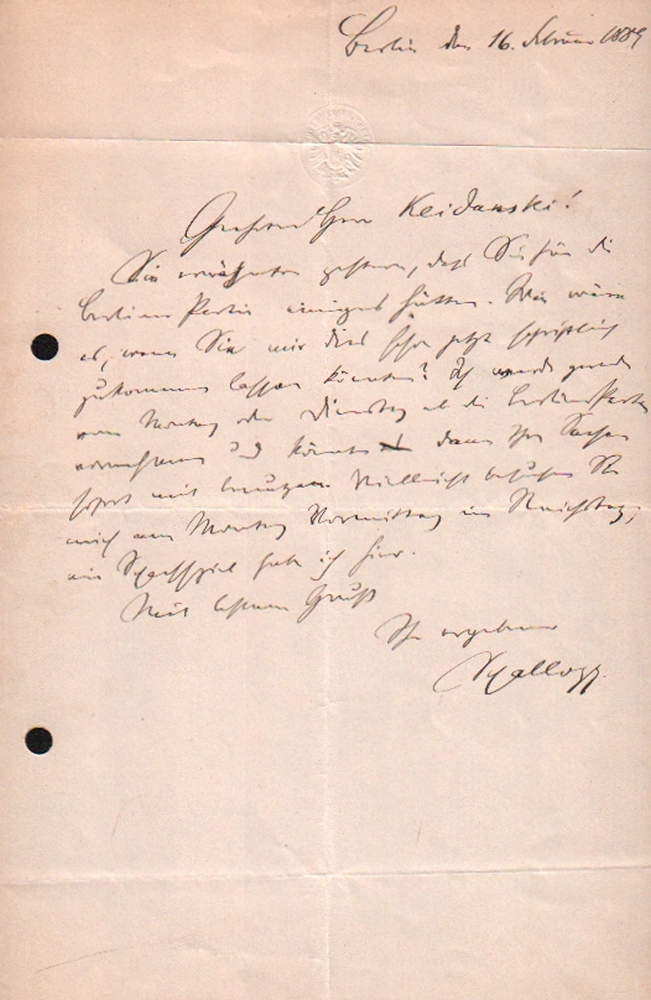 Berlin den 16. Februar 1889
Geehrter Herr Keidanski!
Sie erwähnten gestern, daß Sie für die
Berliner Partie einiges hätten. Wie wäre
es, wenn Sie mir dies schon jetzt schriftlich
zukommen lassen könnten? Ich werde gerade
am Montag oder Dienstag ab die Berliner Partie
vornehmen und könnte dann Ihre Sachen
sofort mit benutzen. Vielleicht besuchen Sie
mich am Montag Vormittag im Reichstag;
ein Schachspiel habe ich hier.
Mit bestem Gruß
Ihr ergebener
Schallopp.